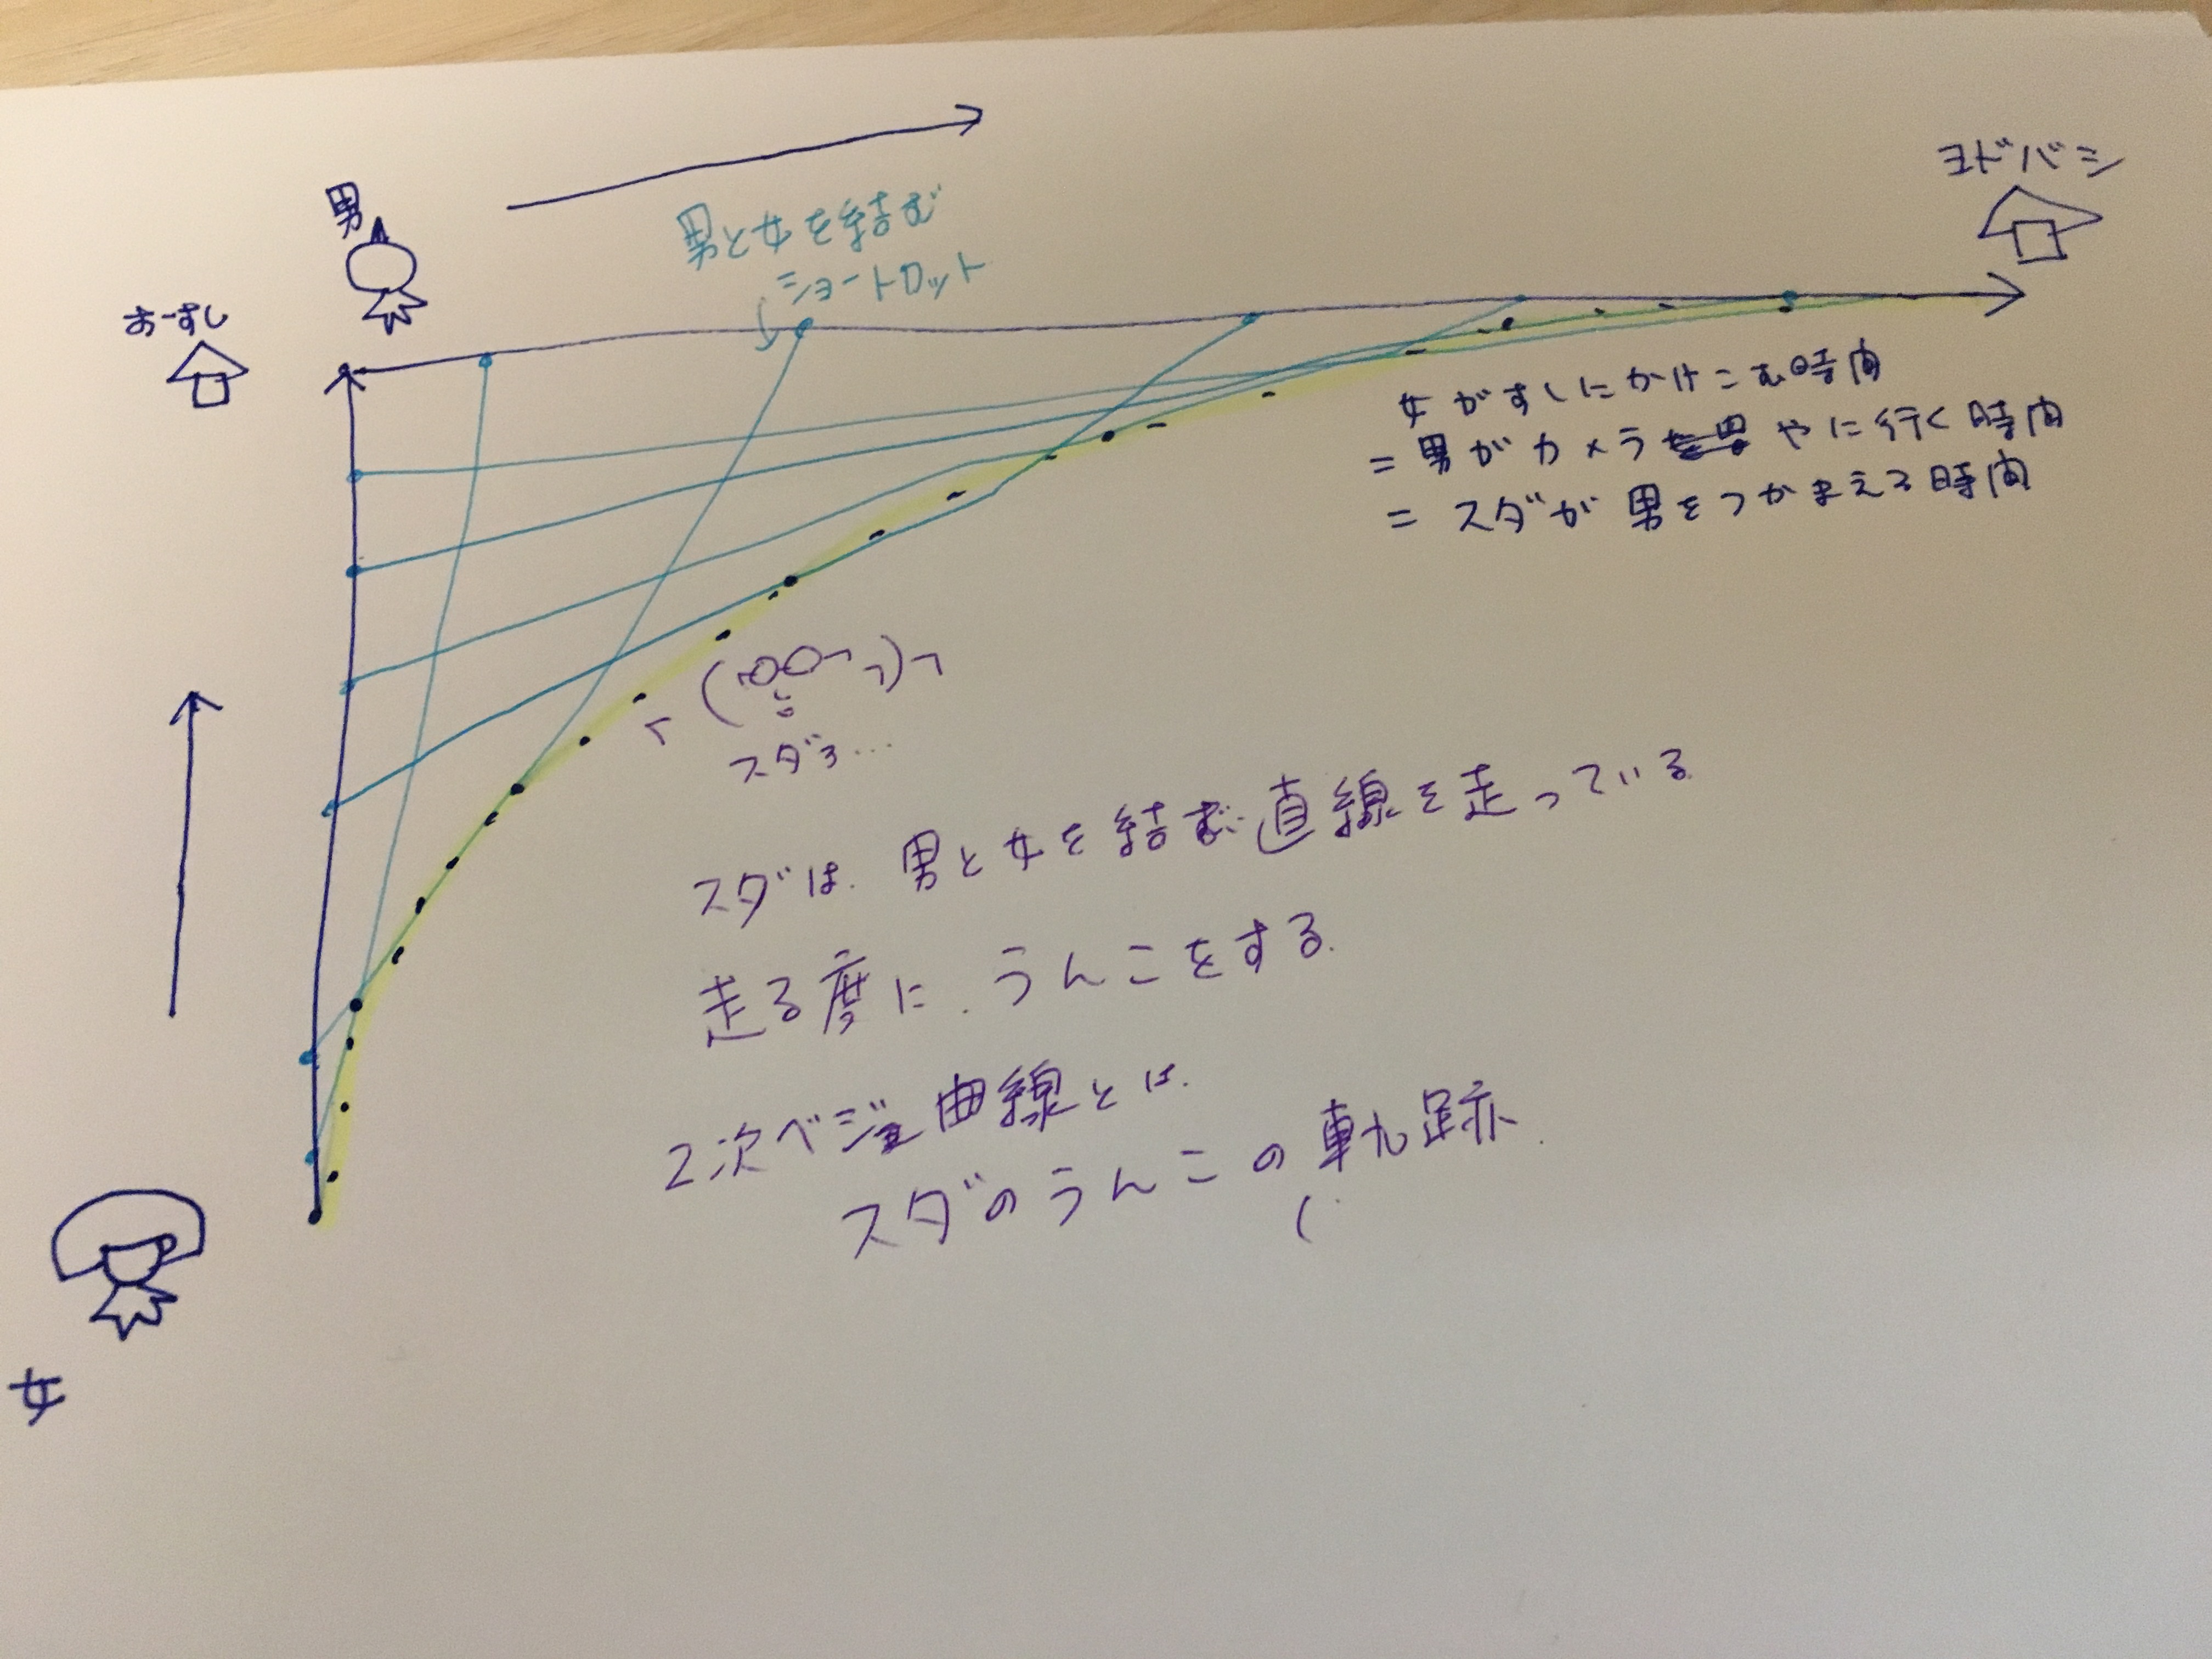 ヨドバシ
男
男と女を結む
ショートロット
おーすし
女がすしにかけこむ時間
= 男がカメラやに行く時間
= スダが男をつかまえる時間
スダ3…
スダは.男と女を結ぶ直線を走っている
走る度に.うんこをする.
2次ベジェ曲線とは.
スダのうんこの軌跡.
女